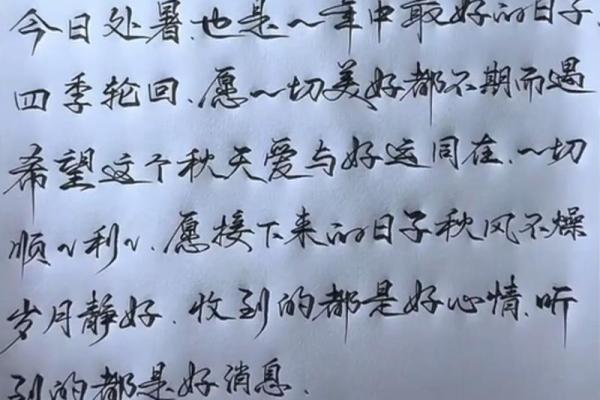 今日处暑.也是一年中最好的日子.
四季轮回、愿一切美好都不期而遇
希望这个秋天爱与好运同在.一切
顺顺利利.愿接下来的日子秋风不燥
岁月静好.收到的都是好心情.听
到的都是好消息.